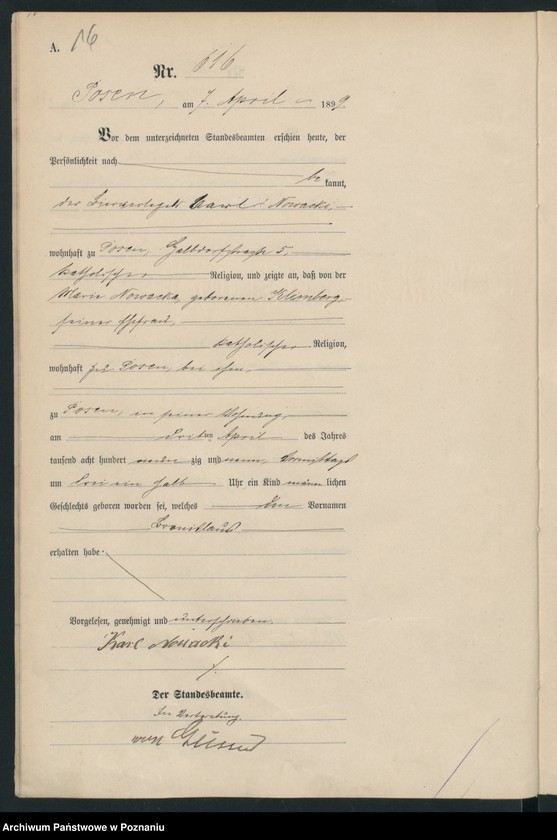 A. 16
Nr. 616
Posen, am 7. April 1899.
Vor dem unterzeichneten Standesbeamten erschien heute, der
Persönlichkeit nach
be kannt,
der Carl Nowacki,
wohnhaft zu Posen, 5,
katholischer Religion, und zeigte an, daß von der
Marie Nowacka, geborenen Klemberg
seiner Ehefrau,
katholischer Religion,
wohnhaft zu Posen, bei ihm,
zu Posen, in seiner Wohnung,
am dritten April des Jahres
tausend acht hundert neun zig und neun, Vormittags
um drei ein halb Uhr ein Kind männ lichen
Geschlechts geboren worden sei, welches den Vornamen
Bronislaus
erhalten habe.
Vorgelesen, genehmigt und unterschrieben.
Karl Nowacki
Der Standesbeamte.
In Vertretung.
Archiwum Państwowe w Poznaniu